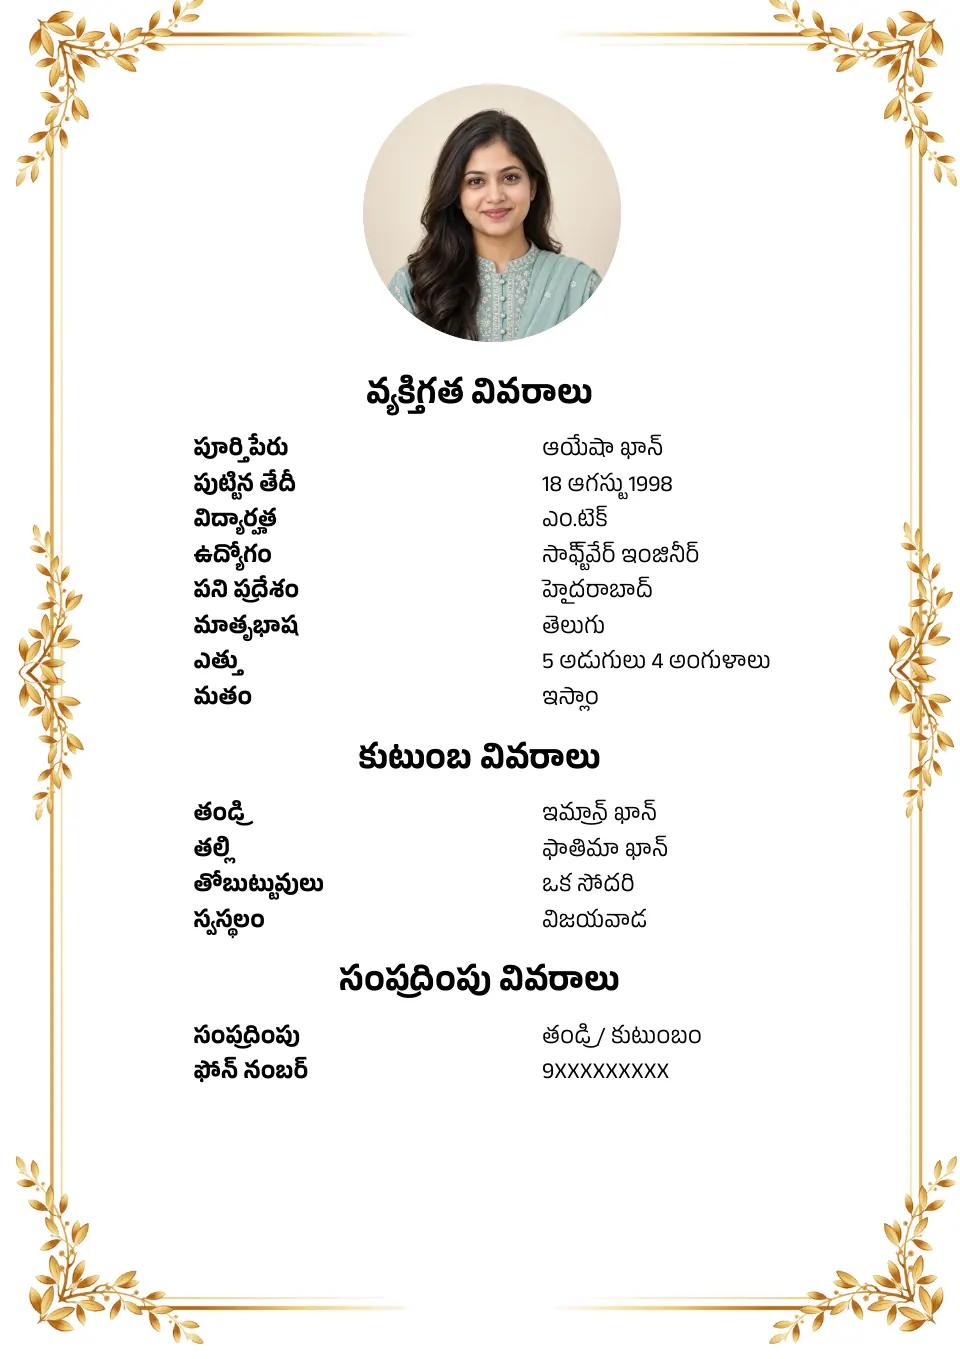 వ్యక్తిగత వివరాలు
పూర్తిపేరు ఆయేషా ఖాన్
పుట్టిన తేదీ 18 ఆగస్టు 1998
విద్యార్హత ఎం.టెక్
ఉద్యోగం సాఫ్ట్‌వేర్ ఇంజినీర్
పని ప్రదేశం హైదరాబాద్
మాతృభాష తెలుగు
ఎత్తు 5 అడుగులు 4 అంగుళాలు
మతం ఇస్లాం
కుటుంబ వివరాలు
తండ్రి ఇమ్రాన్ ఖాన్
తల్లి ఫాతిమా ఖాన్
తోబుట్టువులు ఒక సోదరి
స్వస్థలం విజయవాడ
సంప్రదింపు వివరాలు
సంప్రదింపు తండ్రి / కుటుంబం
ఫోన్ నంబర్ 9XXXXXXXXX